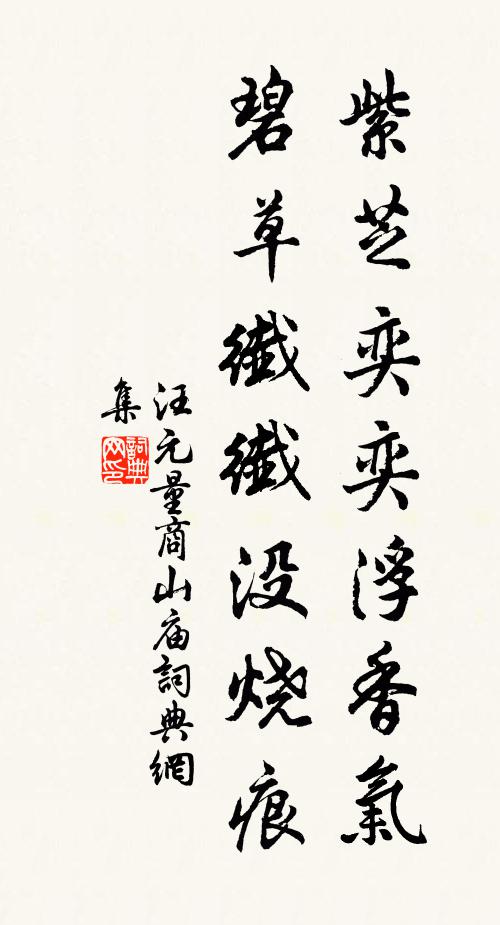 紫芝奕奕浮香氣
碧草纖纖没烧痕
汪元量商山庙詞典網
集
詞典网印